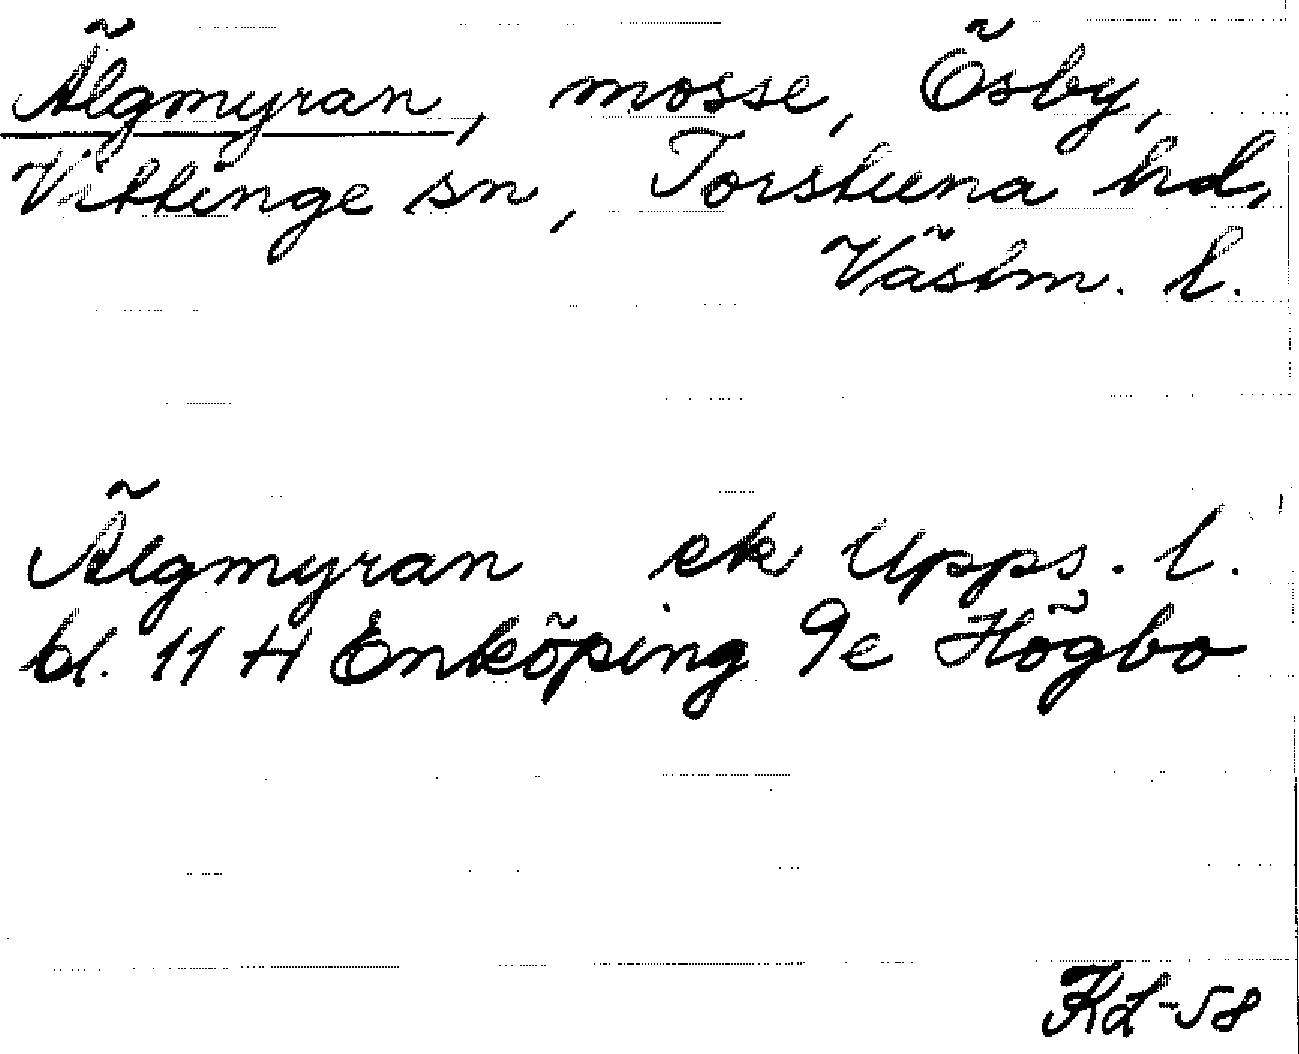 Älgmyran, mosse, Ösby,
Vittinge sn, Torstuna hd,
Västm. l.
Älgmyran ek Upps. l.
bl. 11 H Enköping 9e Högbo
KL-58